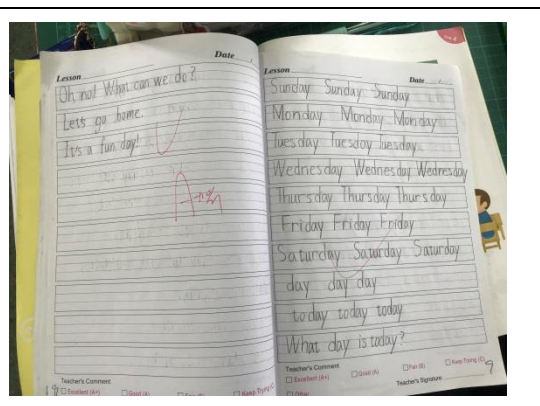 Lesson
Date
Oh, no! What can we do?
Let's go home.
It's a fun day!
A+
Teacher's Comment
Excellent (A+)
Good (A)
Keep Trying (C)
18
Lesson
Date
Sunday Sunday Sunday
Monday Monday Monday
Tuesday Tuesday Tuesday
Wednesday Wednesday Wednesday
Thursday Thursday Thursday
Friday Friday Friday
Saturday Saturday Saturday
day day day
today today today
What day is today?
Teacher's Comment
Excellent (A+)
Good (A)
Fair (B)
Keep Trying (C)
Other
Teacher's Signature
9